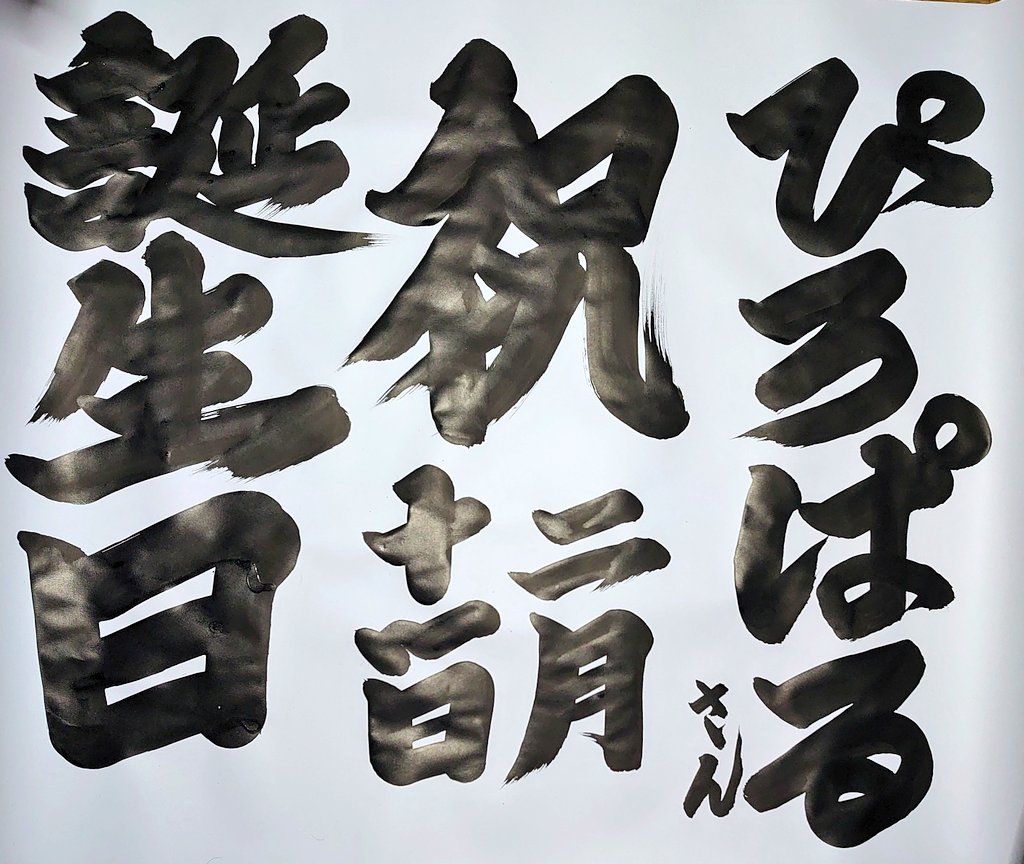 ぴろぱる
さん
祝
二月
十一日
誕生日